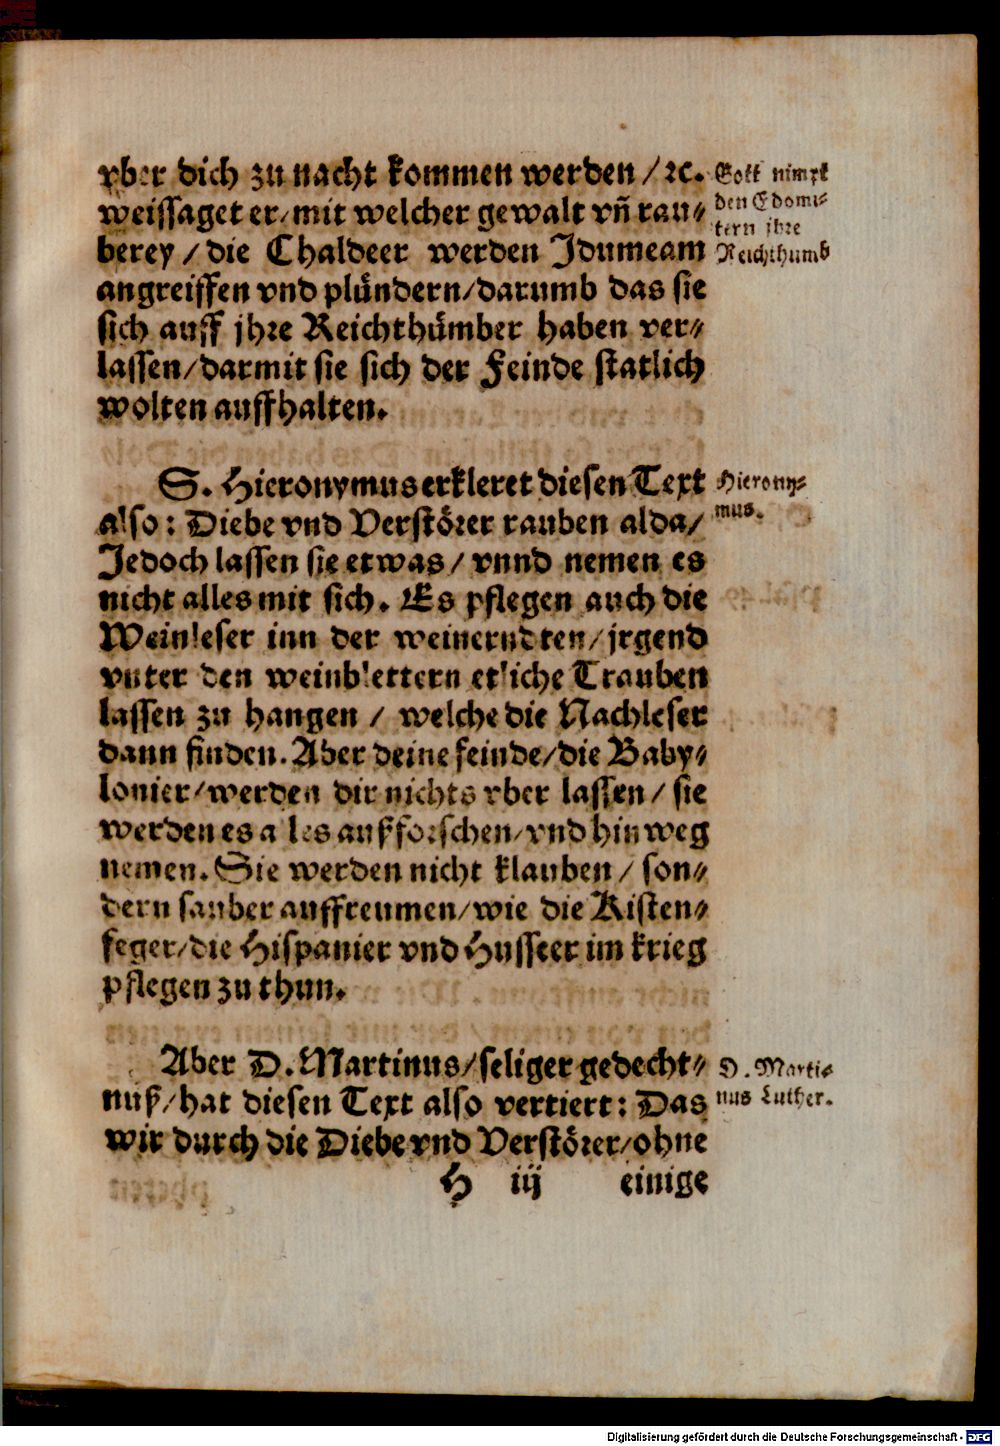 vber dich zu nacht kommen werden / ꝛc.
weissaget er / mit welcher gewalt vñ rau⸗
berey / die Chaldeer werden Idumeam
angreiffen vnd plündern / darumb das sie
sich auff jhre Reichthümber haben ver⸗
lassen / darmit sie sich der Feinde statlich
wolten auffhalten.
Gott nimpt
den Edomi⸗
tern jhre
Reichthumb
S. Hieronymus erkleret diesen Text
also: Diebe vnd Verstörer rauben alda /
Jedoch lassen sie etwas / vnnd nemen es
nicht alles mit sich. Es pflegen auch die
Weinleser inn der weinerndten / jrgend
vnter den weinblettern etliche Trauben
lassen zu hangen / welche die Nachleser
dann finden. Aber deine feinde / die Baby⸗
lonier / werden dir nichts vber lassen / sie
werden es alles außforschen / vnd hinweg
nemen. Sie werden nicht klauben / son⸗
dern sauber auffreumen / wie die Kisten⸗
feger / die Hispanier vnd Husseer im krieg
pflegen zu thun.
Hierony⸗
mus.
Aber D. Martinus / seliger gedecht⸗
nuß / hat diesen Text also vertiert: Das
wir durch die Diebe vnd Verstörer / ohne
D. Marti⸗
nus Luther.
H iij einige
Digitalisierung gefördert durch die Deutsche Forschungsgemeinschaft - DFG